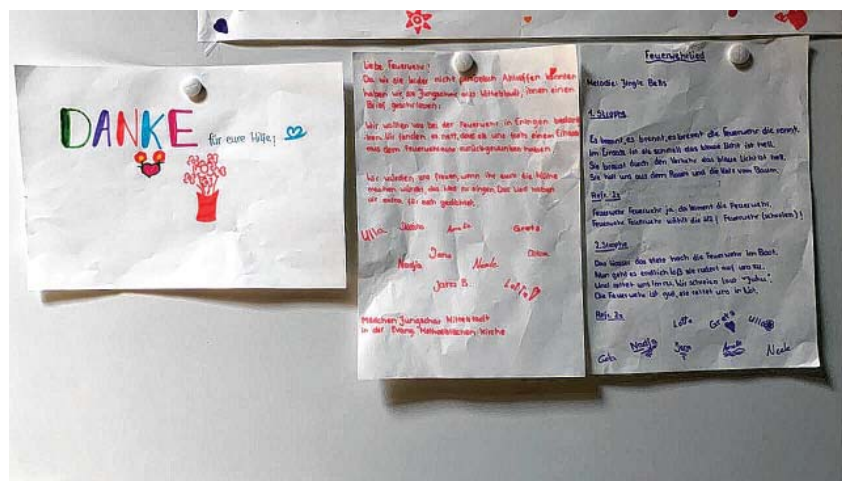 DANKE für eure Hilfe!
Liebe Feuerwehr!
Da wir sie leider nicht persönlich Antreffen konnten
haben wir, die Jungschar aus Mittelstadt, ihnen einen
Brief geschrieben:
Wir wollten uns bei der Feuerwehr in
Wir fanden es nett, dass sie uns trotz einem Einsatz
aus dem Feuerwehrauto zurückgewunken haben.
Wir würden uns freuen, wenn ihr euch die Mühe
machen würdet, das Lied zu singen. Das Lied haben
wir extra für euch gedichtet.
Ulla Greta
Nadja Jana Neele
Jana B. Lotta
Mädchen Jungschar Mittelstadt
in der Evang. Methodistischen Kirche
Feuerwehrlied
Melodie: Jingle Bells
1. Strophe
Es brennt, es brennt, es brennt die Feuerwehr die rennt.
Im Einsatz ist sie schnell das blaue Licht ist hell.
Sie braust durch den Verkehr das blaue Licht ist hell.
Sie holt uns aus dem Raum und die Katz vom Baum.
Refr. 2x
Feuerwehr Feuerwehr ja, da kommt die Feuerwehr.
Feuerwehr Feuerwehr wählt die 112 (Feuerwehr (schreien)!
2. Strophe
Das Wasser das steht hoch die Feuerwehr im Boot.
Nun geht es endlich loß sie rudert auf uns zu.
Und rettet uns im nu. Wir schreien laut "Juhu".
Die Feuerwehr ist gut, sie rettet uns in Not.
Refr. 2x
Lotta Greta Ulla
Nadja Jana Neele